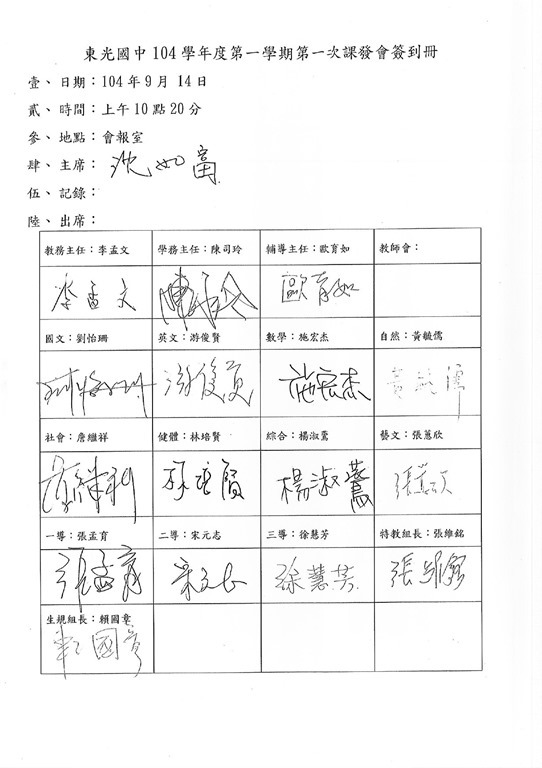 東光國中 104 學年度第一學期第一次課發會簽到冊
壹、日期：104 年 9 月 14 日
貳、時間：上午 10 點 20 分
參、地點：會報室
肆、主席：沈如富
伍、記錄：
陸、出席：
教務主任：李孟文 學務主任：陳司玲 輔導主任：歐育如 教師會：
李孟文 陳司玲 歐育如
國文：劉怡珊 英文：游俊賢 數學：施宏杰 自然：黃毓儒
劉怡珊 游俊賢 施宏杰 黃毓儒
社會：詹繼祥 健體：林培賢 綜合：楊淑鶯 藝文：張蕙欣
詹繼祥 林培賢 楊淑鶯 張蕙欣
一導：張孟育 二導：宋元志 三導：徐慧芳 特教組長：張維銘
張孟育 宋元志 徐慧芳 張維銘
生規組長：賴國章
賴國章